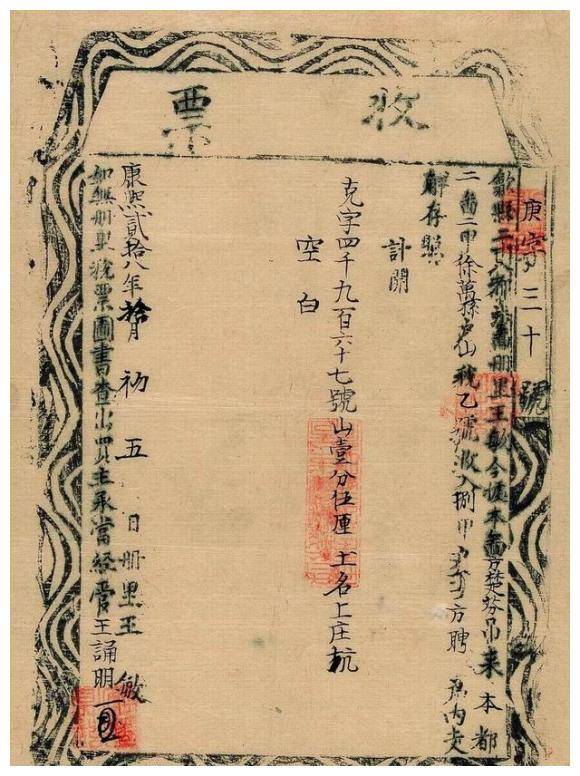 收票
庚字三十號
歙縣二十八都 圖冊里王敏今據本圖方楚芬吊來本都
二圖二甲徐萬 戶山税乙號收入捌甲 方聘 戶内支
解存照
計開
克字四千九百六十七號山壹分伍厘 土名上庄坑
空白
康熙貳拾八年拾月初五日冊里王敏
如無冊里税票圖書查出買主承當 經管王誦明